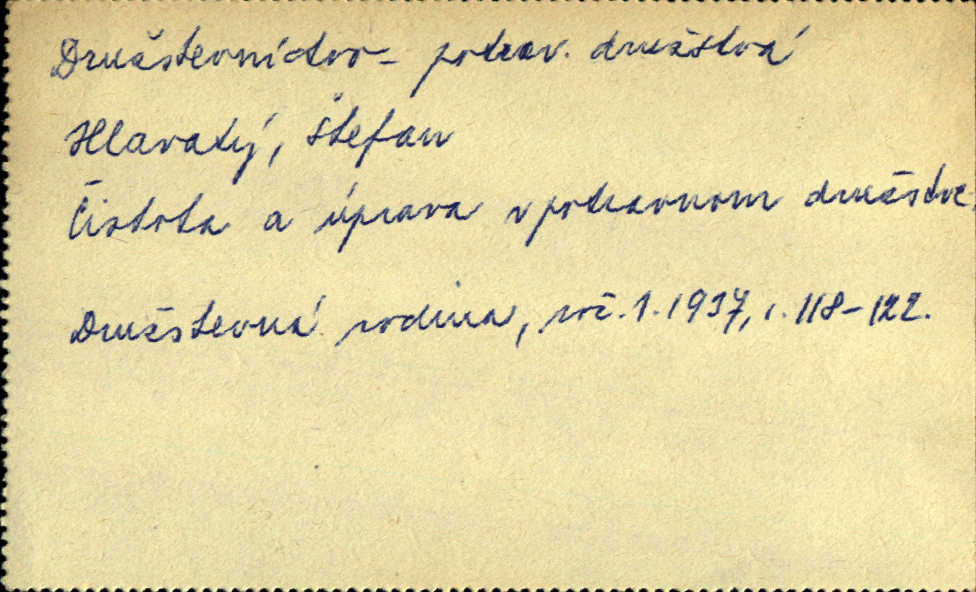 Družstevníctvo - potrav. družstvá
Hlavatý, Štefan
Čistota a úprava v potravnom družstve.
Družstevná rodina, roč. 1. 1937, s. 118-122.